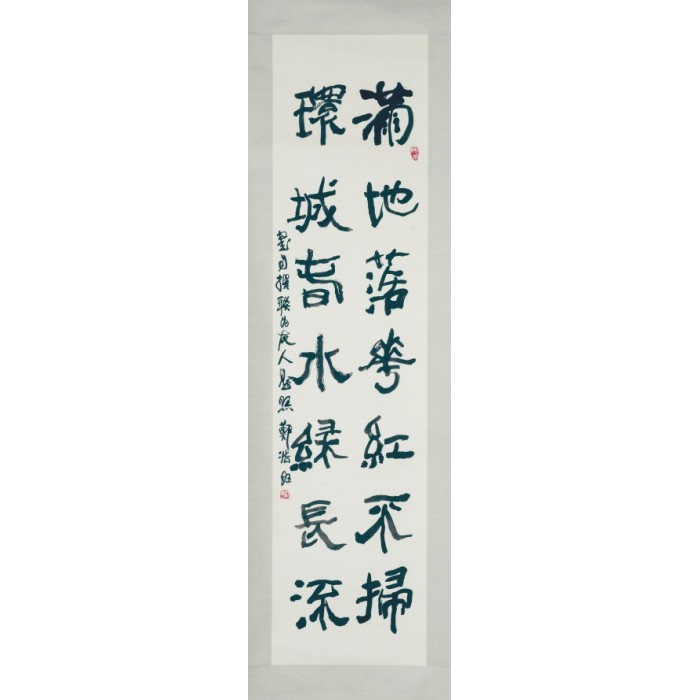 滿地落花紅不掃
環城旾水綠長流
撰聯為友人題照 鄭